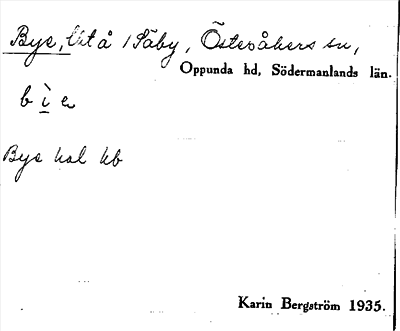 Bye, litå i Säby, Österåkers sn,
Oppunda hd, Södermanlands län.
b ì e
Bye hal hb
Karin Bergström 1935.